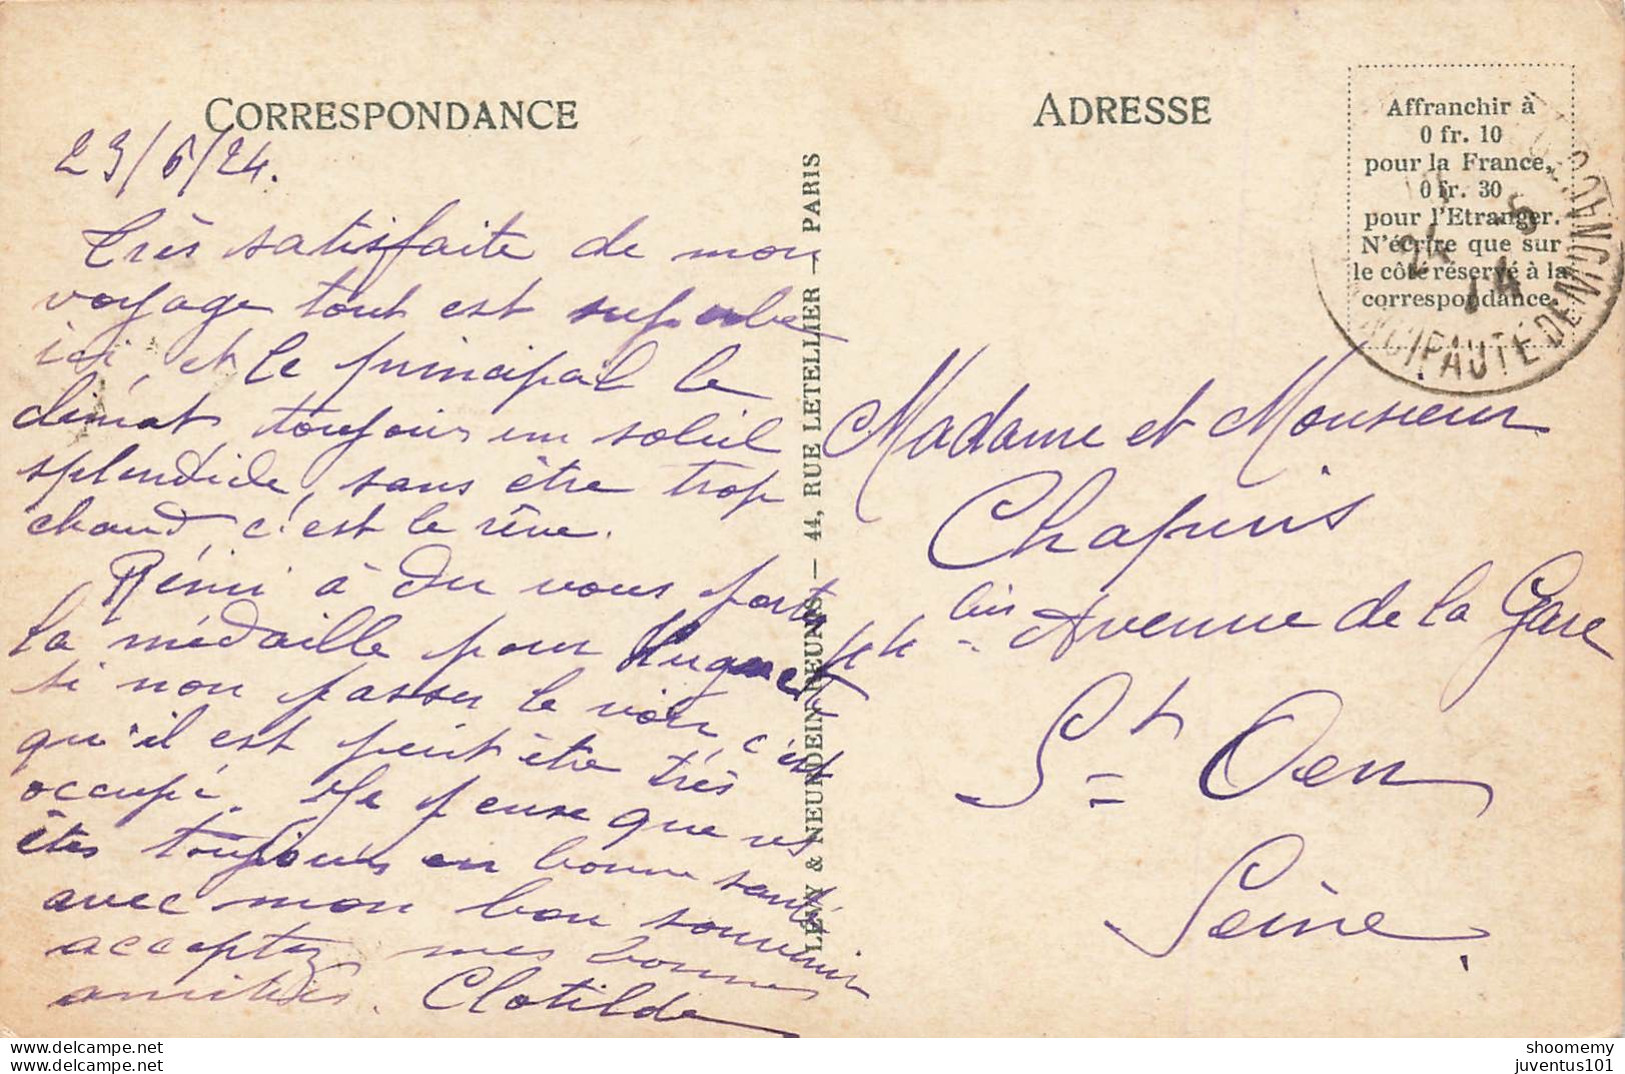 CORRESPONDANCE
23/6/24.
Très satisfaite de mon
voyage tout est superbe
ici, et le principal le
climat, toujours un soleil
splendide, sans être trop
chaud, c'est le rêve.
Rémi à du vous porter
la médaille pour Huguet
si non passer le voir c'est
qu'il est peut être très
occupé. Je pense que vs
êtes toujours en bonne santé
avec mon bon souvenir
acceptez mes bonnes
amitiés. Clotilde
LÉVY & NEURDEIN RÉUNIS — 44, RUE LETELLIER — PARIS
ADRESSE
Affranchir à
0 fr. 10
pour la France,
0 fr. 30
pour l'Etranger.
N'écrire que sur
le côté réservé à la
correspondance.
PRINCIPAUTÉ DE MONACO
Madame et Monsieur
Chapuis
44 bis Avenue de la Gare
St Oen
Seine.
delcampe.net
delcampe.net
shoomemy
juventus101